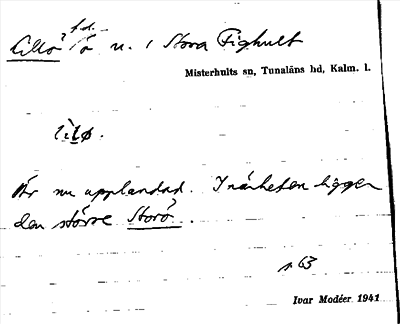 Lillö f.d. ö n. 1 Stora Fighult
Misterhults sn, Tunaläns hd, Kalm. l.
lìlø.
Är nu upplandad. I närheten ligger
den större Storö.
s 63
Ivar Modéer 1941